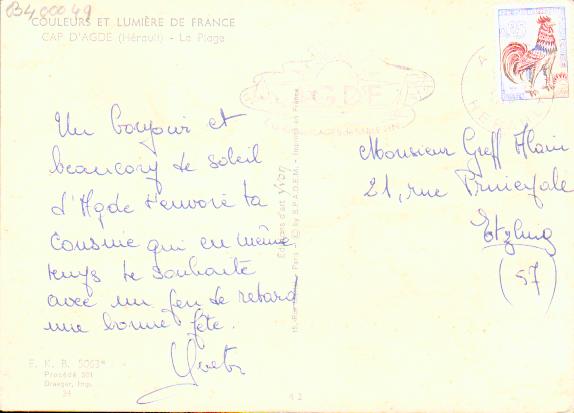 B400049
COULEURS ET LUMIÈRE DE FRANCE
CAP D'AGDE (Hérault) - La Plage
0,25
AGDE
Un bonjour et
beaucoup de soleil
d'Agde t'envoie ta
cousine qui en même
temps te souhaite
avec un peu de retard
une bonne fête.
Yvette
Editions d'art Yvon
15, Rue Martel, Paris - © by S.P.A.D.E.M. - Imprimé en France
Monsieur Greff Alain
21, rue Principale
Etzling
(57)
E. K. B. 5063*
Procédé 301
Draeger, Imp.
34
42